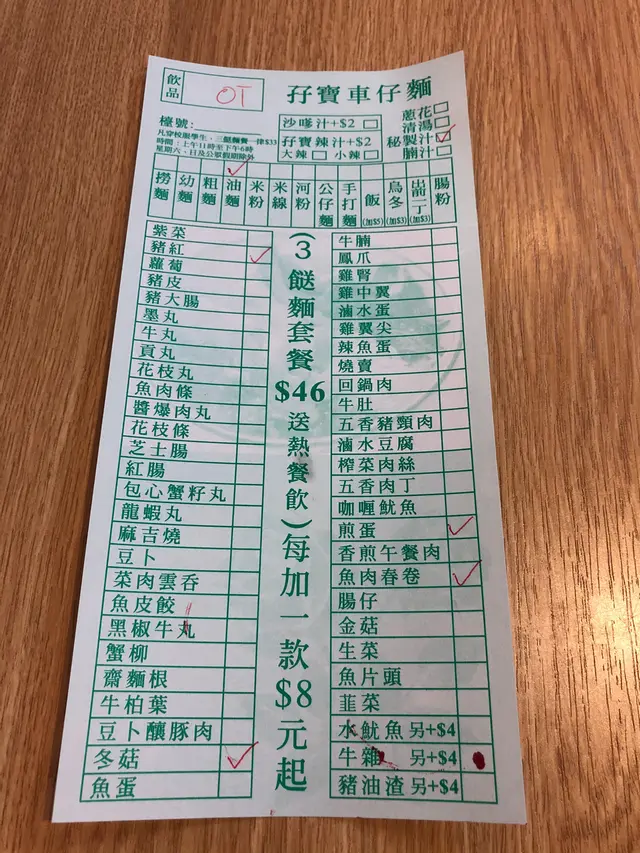 飲品
OT
孖寶車仔麵
檯號:
凡穿校服學生、三餸麵餐一律$33
時間:上午11時至下午6時
星期六、日及公眾假期除外
沙嗲汁+$2
孖寶辣汁+$2
大辣 小辣
蔥花
清湯
秘製汁
腩汁
撈麵
幼麵
粗麵
油麵
米粉
米線
河粉
公仔麵
手打麵
飯(加$5)
烏冬(加$3)
出前一丁(加$3)
腸粉
紫菜
豬紅
蘿蔔
豬皮
豬大腸
墨丸
牛丸
貢丸
花枝丸
魚肉條
醬爆肉丸
花枝條
芝士腸
紅腸
包心蟹籽丸
龍蝦丸
麻吉燒
豆卜
菜肉雲吞
魚皮餃
黑椒牛丸
蟹柳
齋麵根
牛柏葉
豆卜釀豚肉
冬菇
魚蛋
(3餸麵套餐$46送熱餐飲)每加一款$8元起
牛腩
鳳爪
雞腎
雞中翼
滷水蛋
雞翼尖
辣魚蛋
燒賣
回鍋肉
牛肚
五香豬頸肉
滷水豆腐
榨菜肉絲
五香肉丁
咖喱魷魚
煎蛋
香煎午餐肉
魚肉春卷
腸仔
金菇
生菜
魚片頭
韮菜
水魷魚另+$4
牛雜 另+$4
豬油渣另+$4